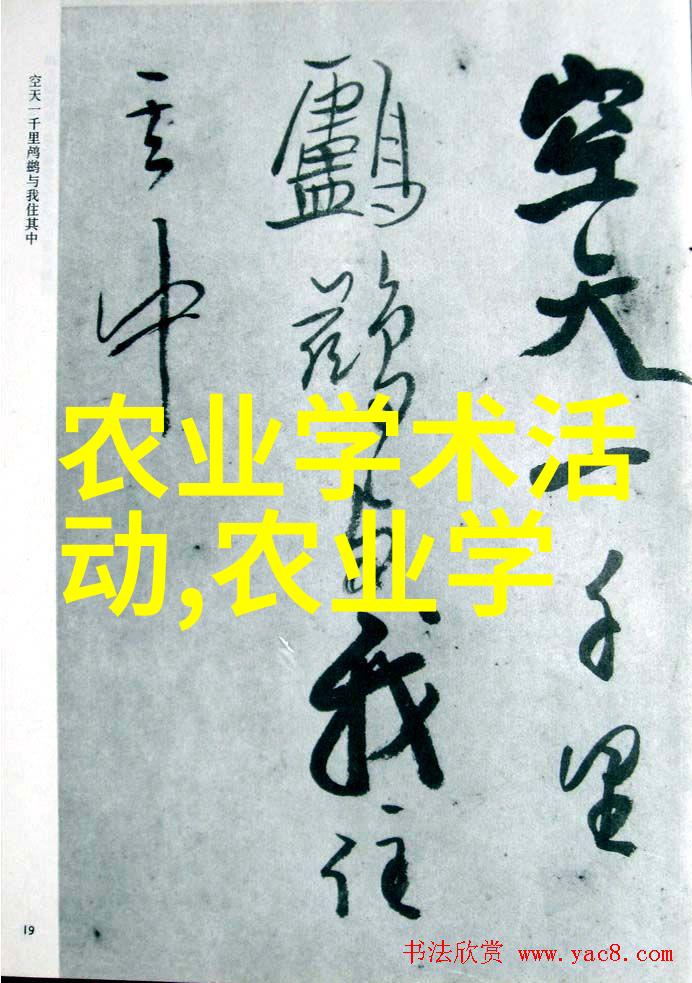 空天一千里
鸕鷀与我住
其中
空天一千里鸬鹚与我住其中
农业学术活
动,农业学
19
书法欣赏 www.yac8.com